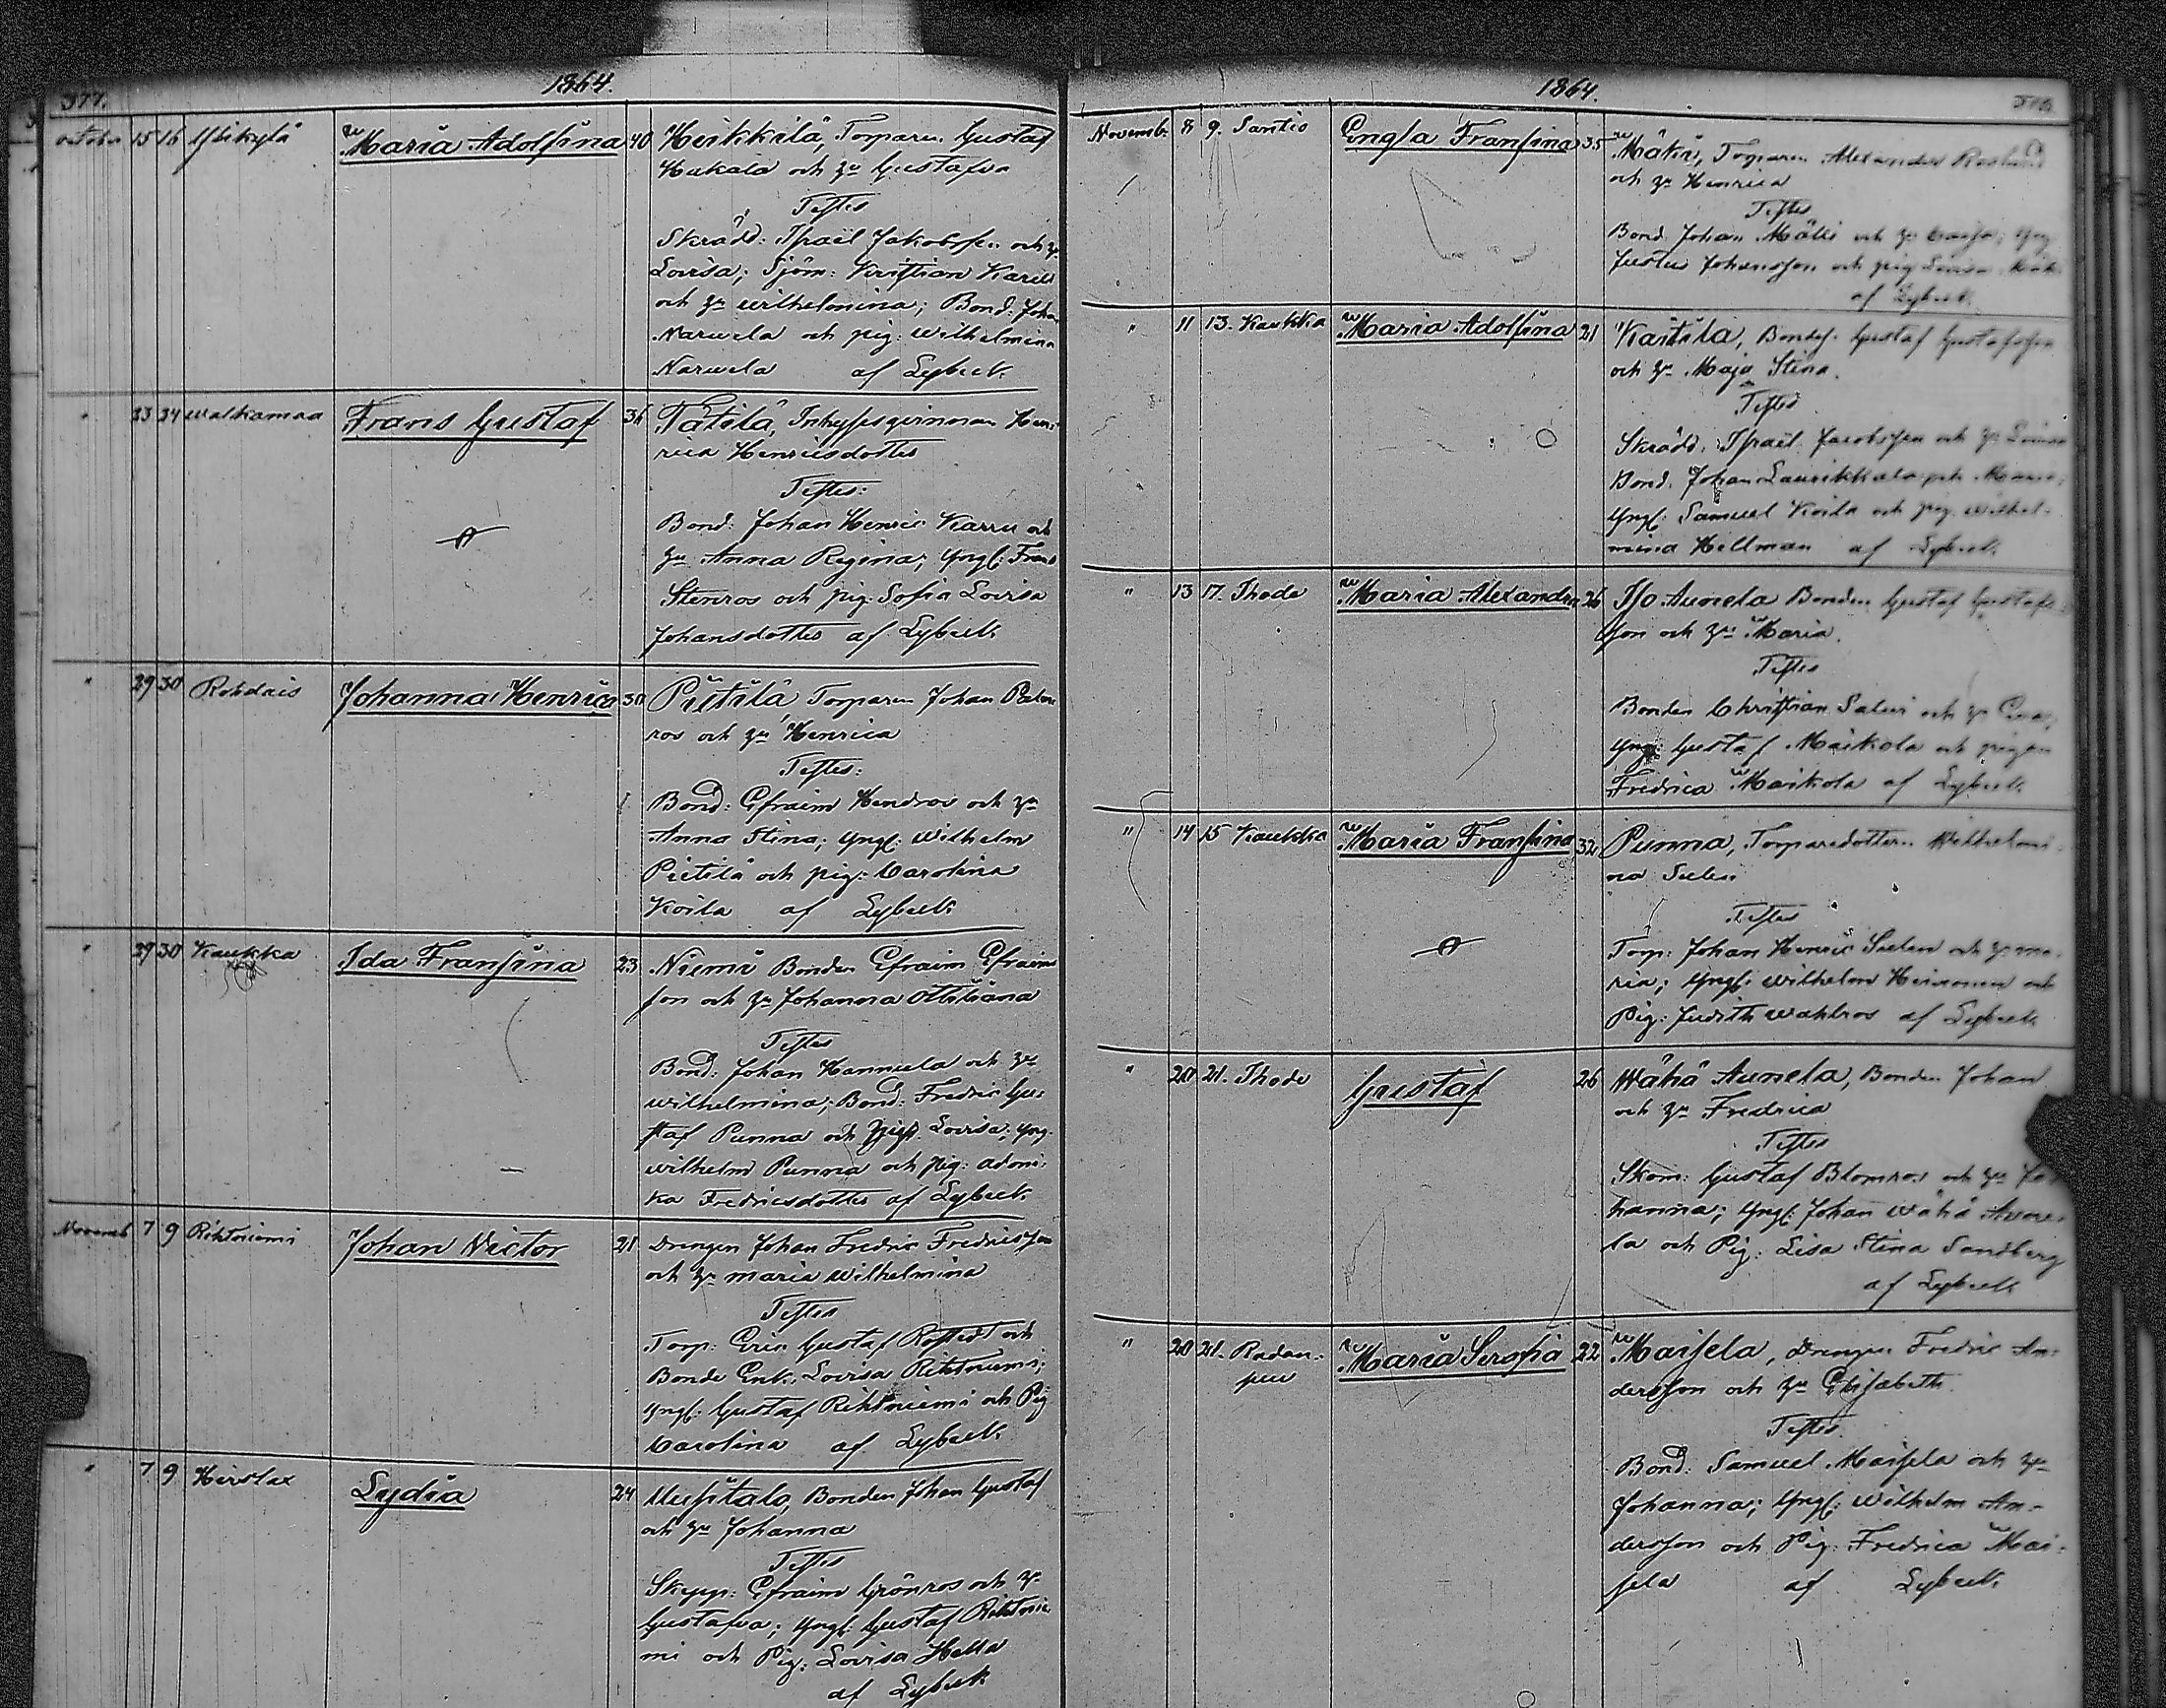 377.
1864.
october 15 16 Ylikylä Maria Adolfina 40 Heikkilä, Torparen Gustaf
Hukala och hu Gustafva
Testes
Skrädd: Israël Jakobsson och hu
Lovisa; Sjöm: Kristian Karell
och hu Wilhelmina; Bond: Johan
Narwela och pig: Wilhelmina
Narwela af Lybeck.
" 23 24 Walkamaa Frans Gustaf 36 Tätilä, Inhysesqvinnan Hen-
rica Henricsdotter
Testes:
Bond: Johan Henric Karru och
hu Anna Regina; Yngl: Frans
Stenros och pig: Sofia Lovisa
Johansdotter af Lybeck
" 29 30 Rohdais Johanna Henrica 30 Pietilä Torparen Johan
ros och hu Henrica
Testes:
Bond: Efraim Hendros och hu
Anna Stina; Yngl: Wilhelm
Pietilä och pig: Carolina
Koila af Lybeck
" 29 30 Kaukka Ida Fransina 23 Niemi Bonden Efraim Efraims
son och hu Johanna Ottiliana
Testes
Bond: Johan Hannula och hu
Wilhelmina; Bond: Fredric Gu-
staf Punna och Lovisa; Yng.
Wilhelm Punna och pig: Adami-
ka Fredricsdotter af Lybeck
Novemb 7 9 Rihtniemi Johan Victor 21 Drengen Johan Fredric Fredricsson
och hu Maria Wilhelmina
Testes
Torp: Eric Gustaf Rostedt och
Bonde Enk: Lovisa Rihtniemi;
Yngl: Gustaf Rihtniemi och Pig
Carolina af Lybeck
" 7 9 Hirslax Lydia 24 Uusitalo, Bonden Johan Gustaf
och hu Johanna
Testes
Skepp: Efraim Grönros och hu
Gustafva; Yngl: Gustaf Rihtnie-
mi och Pig: Lovisa Hella
af Lybeck
1864.
Novemb. 8 9. Santio Engla Fransina 35 Mäkis, Torparen Alexander Roslund
och hu Henrica
Testes
Bond Johan Mäkis och hu Caisa; Yng
Justus Johansson och pig Lovisa
af Lybeck
" 11 13. Kaukka Maria Adolfina 21 Kaitila, Bondes. Gustaf Gustafsson
och hu Maja Stina.
Testes
Skrädd: Israël Jacobsson och hu Lovisa
Bond. Johan Laurikkala och Maria;
Yngl: Samuel Koila och pig. Wilhel-
mina Hellman af Lybeck.
" 13 17. Thode Maria Alexandra 26 Iso Aunela Bonden Gustaf Gustafs-
son och hu Maria.
Testes
Bonden Christian Salmi och hu Eva;
Yng: Gustaf Maikola och pigan
Fredrica Maikola af Lybeck.
" 14 15 Kaukka Maria Fransina 32 Punna, Torparedottern Wilhelmi-
na Selin
Testes
Torp: Johan Henric Selin och hu Ma-
ria; Yngl: Wilhelm Heinonen och
Pig: Judith Wahlros af Lybeck.
" 20 21. Thode Gustaf 26 Wähä Aunela, Bonden Johan
och hu Fredrica
Testes
Skom: Gustaf Blomros och hu Jo-
hanna; Yngl: Johan Wähä Aune-
la och Pig: Lisa Stina Sandberg
af Lybeck
" 20 21. Radan- Maria Serafia 22 Maisela, Drengen Fredric An-
puu
dersson och hu Elisabeth.
Testes.
Bond: Samuel Maisela och hu
Johanna; Yngl: Wilhelm An-
dersson och Pig: Fredrica Mai-
sela af Lybeck